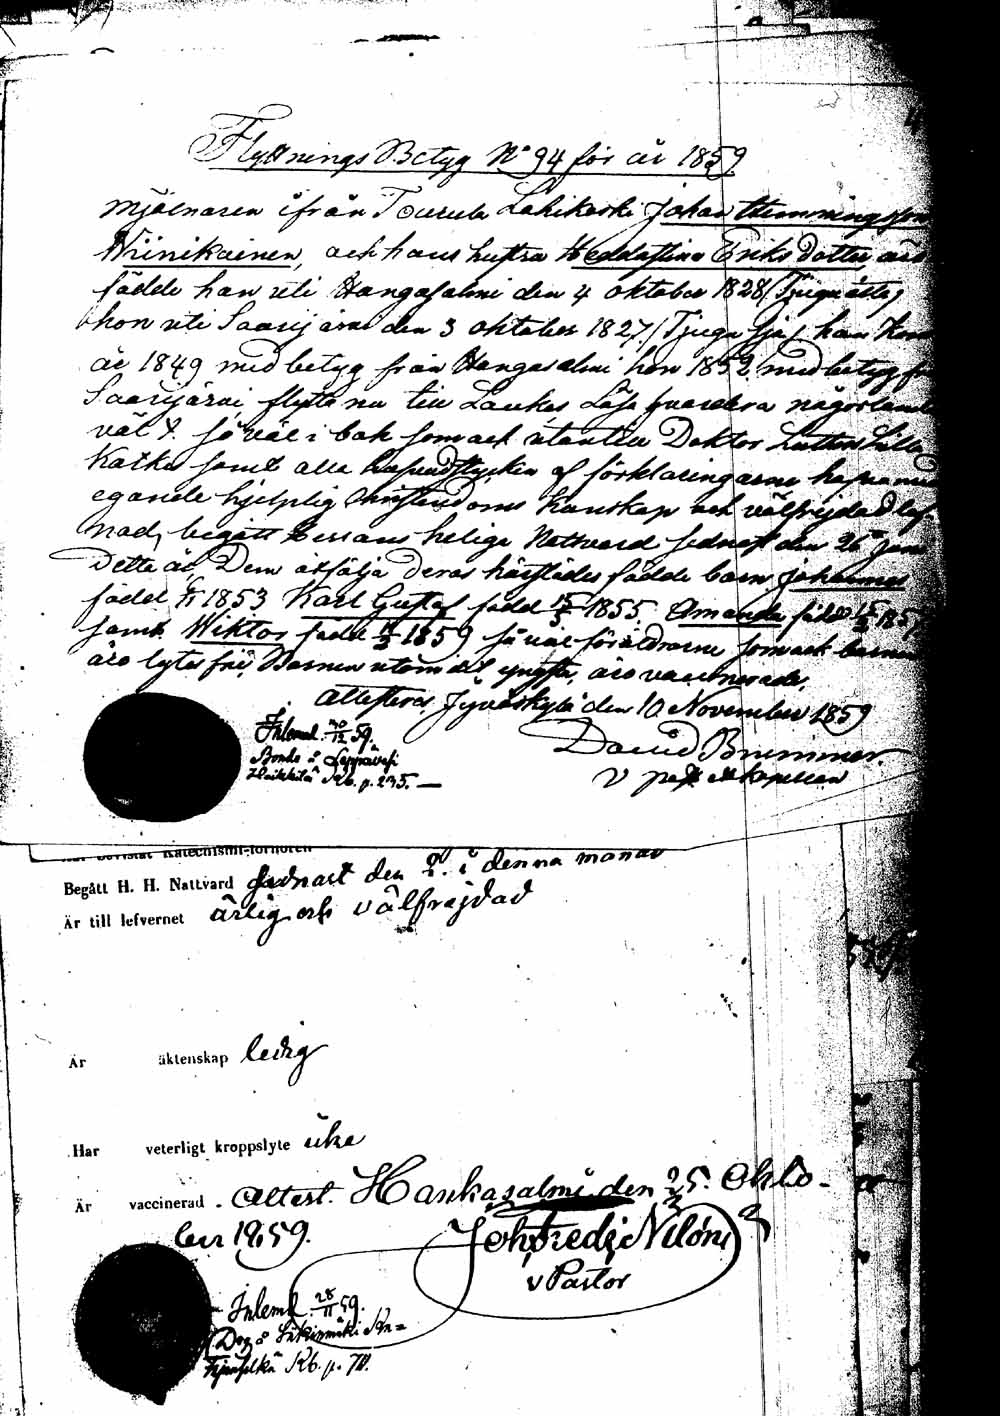 Flyttnings Betyg No 94 för år 1859
Mjölnaren ifrån Tourula Johan Hemmingsson
Wiinikainen, och hans hustru Hedda Stina Eriks dotter, äro
födde han uti Hangasalmi den 4 oktober 1828 (Tjuguåtta)
hon uti Saarijärvi den 3 oktober 1827, (Tjugusju) han kom
år 1849 med betyg från Hangasalmi hon 1852 med betyg från
Saarijärvi, flytta nu till Laukas Läsa hvardera någorlunda
väl. så väl i bok som ock utantill Doktor Luthers Lilla
Katkes samt alla hufvudstycken af förklaringarne hafva med
egande hjelplig Christendoms kunskap och välfrejdad lef
nad, begått Herrans helige Nattvard sednast den 26 Juni
Detta år. Dem åtfölja deras härstädes födde barn Johannes
född 1853 Karl Gustaf född 1855. Amanda född 1857
samt Wiktor född 1859 så väl föräldrarne som ock barnen
äro lytes fri, Barnen utom det yngsta, äro vaccinerade.
Attesteras, Jyväskylä den 10 November 1859
Inleml. 30/12 59. David Brummer.
Bonde å Leppävesi v past
Heikkilä Kb. p. 235.
Katechismi-förhören
Begått H. H. Nattvard sednast den 2. i denna månad
Är till lefvernet ärlig och välfrejdad
Är äktenskap ledig
Har veterligt kroppslyte icke
Är vaccinerad. Attest. Hankasalmi den 25. Okto-
ber 1859. Joh. Fredr. Nilón
v Pastor
Inleml. 28/11 59.
Kb. p.